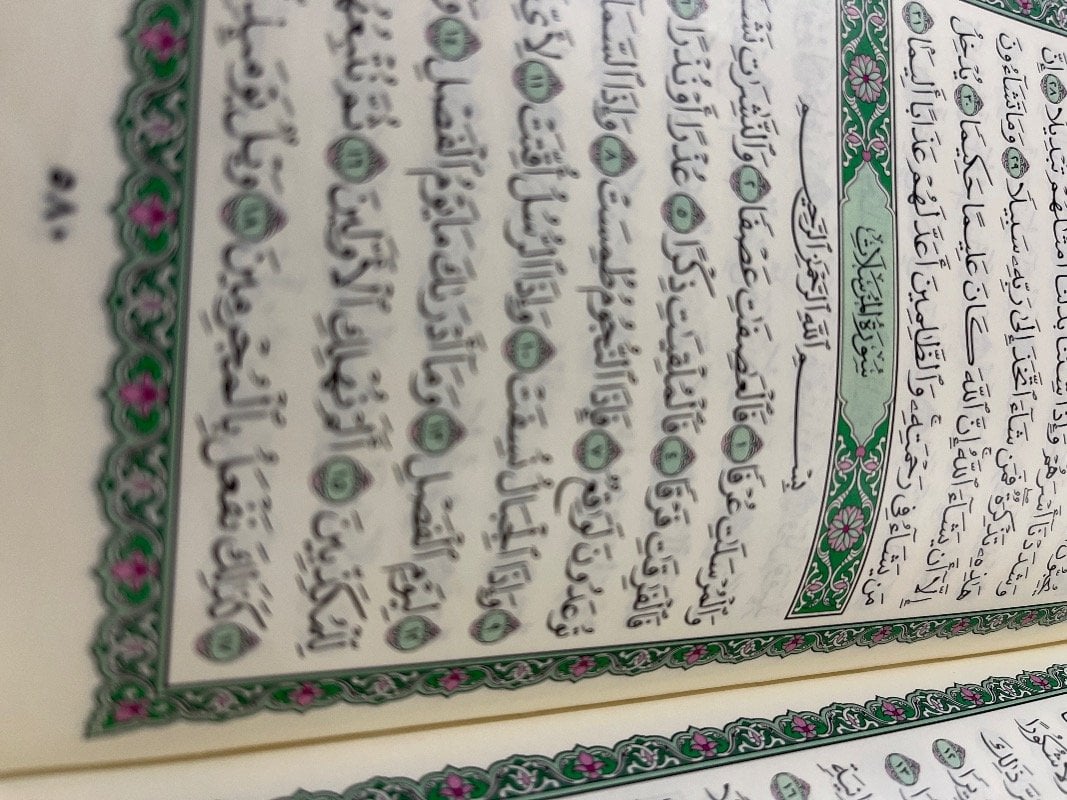 وَشَدَدْنَآ أَسْرَهُمْ وَإِذَا شِئْنَا بَدَّلْنَآ أَمْثَـٰلَهُمْ تَبْدِيلًا ٢٨ إِنَّ
هَـٰذِهِۦ تَذْكِرَةٌ فَمَن شَآءَ ٱتَّخَذَ إِلَىٰ رَبِّهِۦ سَبِيلًا ٢٩ وَمَا تَشَآءُونَ
إِلَّآ أَن يَشَآءَ ٱللَّهُ إِنَّ ٱللَّهَ كَانَ عَلِيمًا حَكِيمًا ٣٠ يُدْخِلُ
مَن يَشَآءُ فِى رَحْمَتِهِۦ وَٱلظَّـٰلِمِينَ أَعَدَّ لَهُمْ عَذَابًا أَلِيمًۢا ٣١
سُورَةُ المُرْسَلَاتِ
بِسْمِ ٱللَّهِ ٱلرَّحْمَـٰنِ ٱلرَّحِيمِ
وَٱلْمُرْسَلَـٰتِ عُرْفًا ١ فَٱلْعَـٰصِفَـٰتِ عَصْفًا ٢ وَٱلنَّـٰشِرَٰتِ نَشْـ
فَٱلْفَـٰرِقَـٰتِ فَرْقًا ٤ فَٱلْمُلْقِيَـٰتِ ذِكْرًا ٥ عُذْرًا أَوْ نُذْرًا ٦
تُوعَدُونَ لَوَٰقِعٌ ٧ فَإِذَا ٱلنُّجُومُ طُمِسَتْ ٨ وَإِذَا ٱلسَّمَا
٩ وَإِذَا ٱلْجِبَالُ نُسِفَتْ ١٠ وَإِذَا ٱلرُّسُلُ أُقِّتَتْ ١١ لِأَىِّ
١٢ لِيَوْمِ ٱلْفَصْلِ ١٣ وَمَآ أَدْرَىٰكَ مَا يَوْمُ ٱلْفَصْلِ ١٤ وَ
لِّلْمُكَذِّبِينَ ١٥ أَلَمْ نُهْلِكِ ٱلْأَوَّلِينَ ١٦ ثُمَّ نُتْبِعُهُ
١٧ كَذَٰلِكَ نَفْعَلُ بِٱلْمُجْرِمِينَ ١٨ وَيْلٌ يَوْمَئِذٍ
٥٨٠